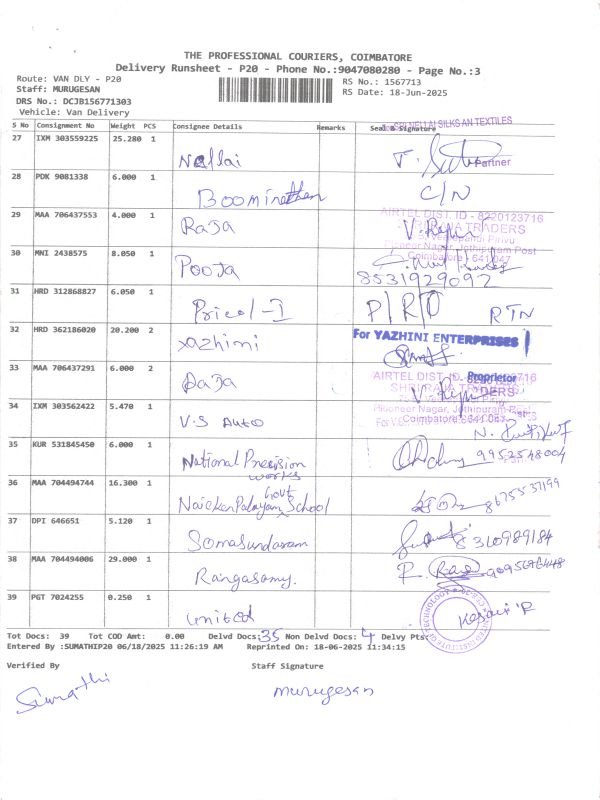 THE PROFESSIONAL COURIERS, COIMBATORE
Delivery Runsheet - P20 - Phone No.:9047080280 - Page No.:3
Route: VAN DLY - P20
RS No.: 1567713
Staff: MURUGESAN
RS Date: 18-Jun-2025
DRS No.: DCJB156771303
Vehicle: Van Delivery
S No Consignment No Weight PCS Consignee Details Remarks Seal & Signature
NELLAI SILKS AN TEXTILES
27 IXM 303559225 25.280 1 Nellai Partner
28 PDK 9081338 6.000 1 Boominathan C/N
29 MAA 706437553 4.000 1 Raja
AIRTEL DIST. ID - 8220123716
TRADERS
Pioneer Nagar, Jothipuram Post
Coimbatore - 641 047
30 MNI 2438575 8.050 1 Pooja
8531929092
31 HRD 312868827 6.050 1 Pricol-I P/R/O RTN
32 HRD 362186020 20.200 2 Yazhini
For YAZHINI ENTERPRISES
Proprietor
33 MAA 706437291 6.000 2 Raja
AIRTEL DIST. ID
Pioneer Nagar, Jothipuram Post
Coimbatore
34 IXM 303562422 5.470 1 V.S AUTO
35 KUR 531845450 6.000 1 National Precision works 9952548004
36 MAA 704494744 16.300 1 Naicken Palayam Govt School
37 DPI 646651 5.120 1 Somasundaram 8310989184
38 MAA 704494006 29.000 1 Rangasamy.
39 PGT 7024255 0.250 1 United
INSTITUTE OF TECHNOLOGY
Tot Docs: 39 Tot COD Amt: 0.00 Delvd Docs: 35 Non Delvd Docs: 4 Delvy Pts:
Entered By :SUMATHIP20 06/18/2025 11:26:19 AM Reprinted On: 18-06-2025 11:34:15
Verified By
Staff Signature
Sumathi
murugesan